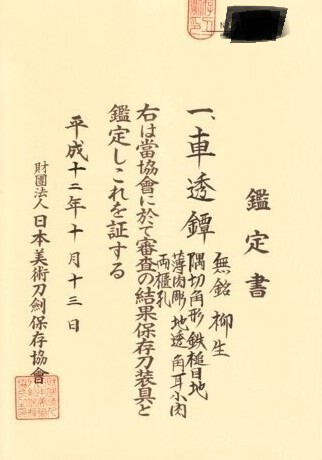 鑑定書
一、車透鐔
無銘 柳生
隅切角形 鉄槌目地
薄肉彫 地透 角耳小肉
両櫃孔
右は當協會に於て審査の結果保存刀装具と
鑑定しこれを証する
平成十二年十月十三日
財團法人 日本美術刀劍保存協會